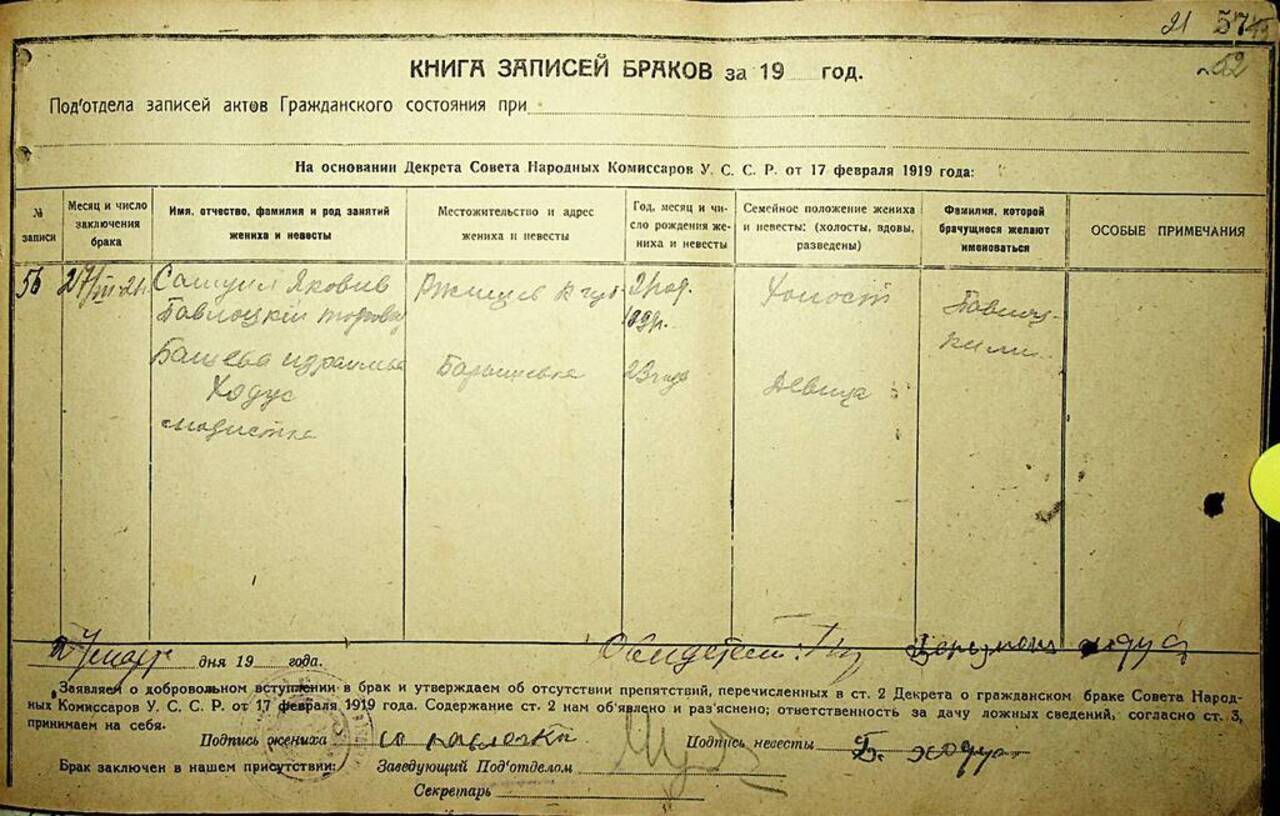 21 57
52
КНИГА ЗАПИСЕЙ БРАКОВ за 19 год.
Под'отдела записей актов Гражданского состояния при
На основании Декрета Совета Народных Комиссаров У. С. С. Р. от 17 февраля 1919 года:
№ записи
Месяц и число заключения брака
Имя, отчество, фамилия и род занятий жениха и невесты
Местожительство и адрес жениха и невесты
Год, месяц и число рождения жениха и невесты
Семейное положение жениха и невесты: (холосты, вдовы, разведены)
Фамилия, которой брачущиеся желают именоваться
ОСОБЫЕ ПРИМЕЧАНИЯ
56 27/III-21 Самуил Яковив Ржищев К губ 21 год. Холост
Павлоцкий
Башева Барышевка 23 года Девица
Ходус
модистка
27 март дня 19 года.
Заявляем о добровольном вступлении в брак и утверждаем об отсутствии препятствий, перечисленных в ст. 2 Декрета о гражданском браке Совета Народ-
ных Комиссаров У. С. С. Р. от 17 февраля 1919 года. Содержание ст. 2 нам об'явлено и раз'яснено; ответственность за дачу ложных сведений, согласно ст. 3,
принимаем на себя.
Подпись жениха Подпись невесты Б. Ходус
Брак заключен в нашем присутствии: Заведующий Под'отделом
Секретарь